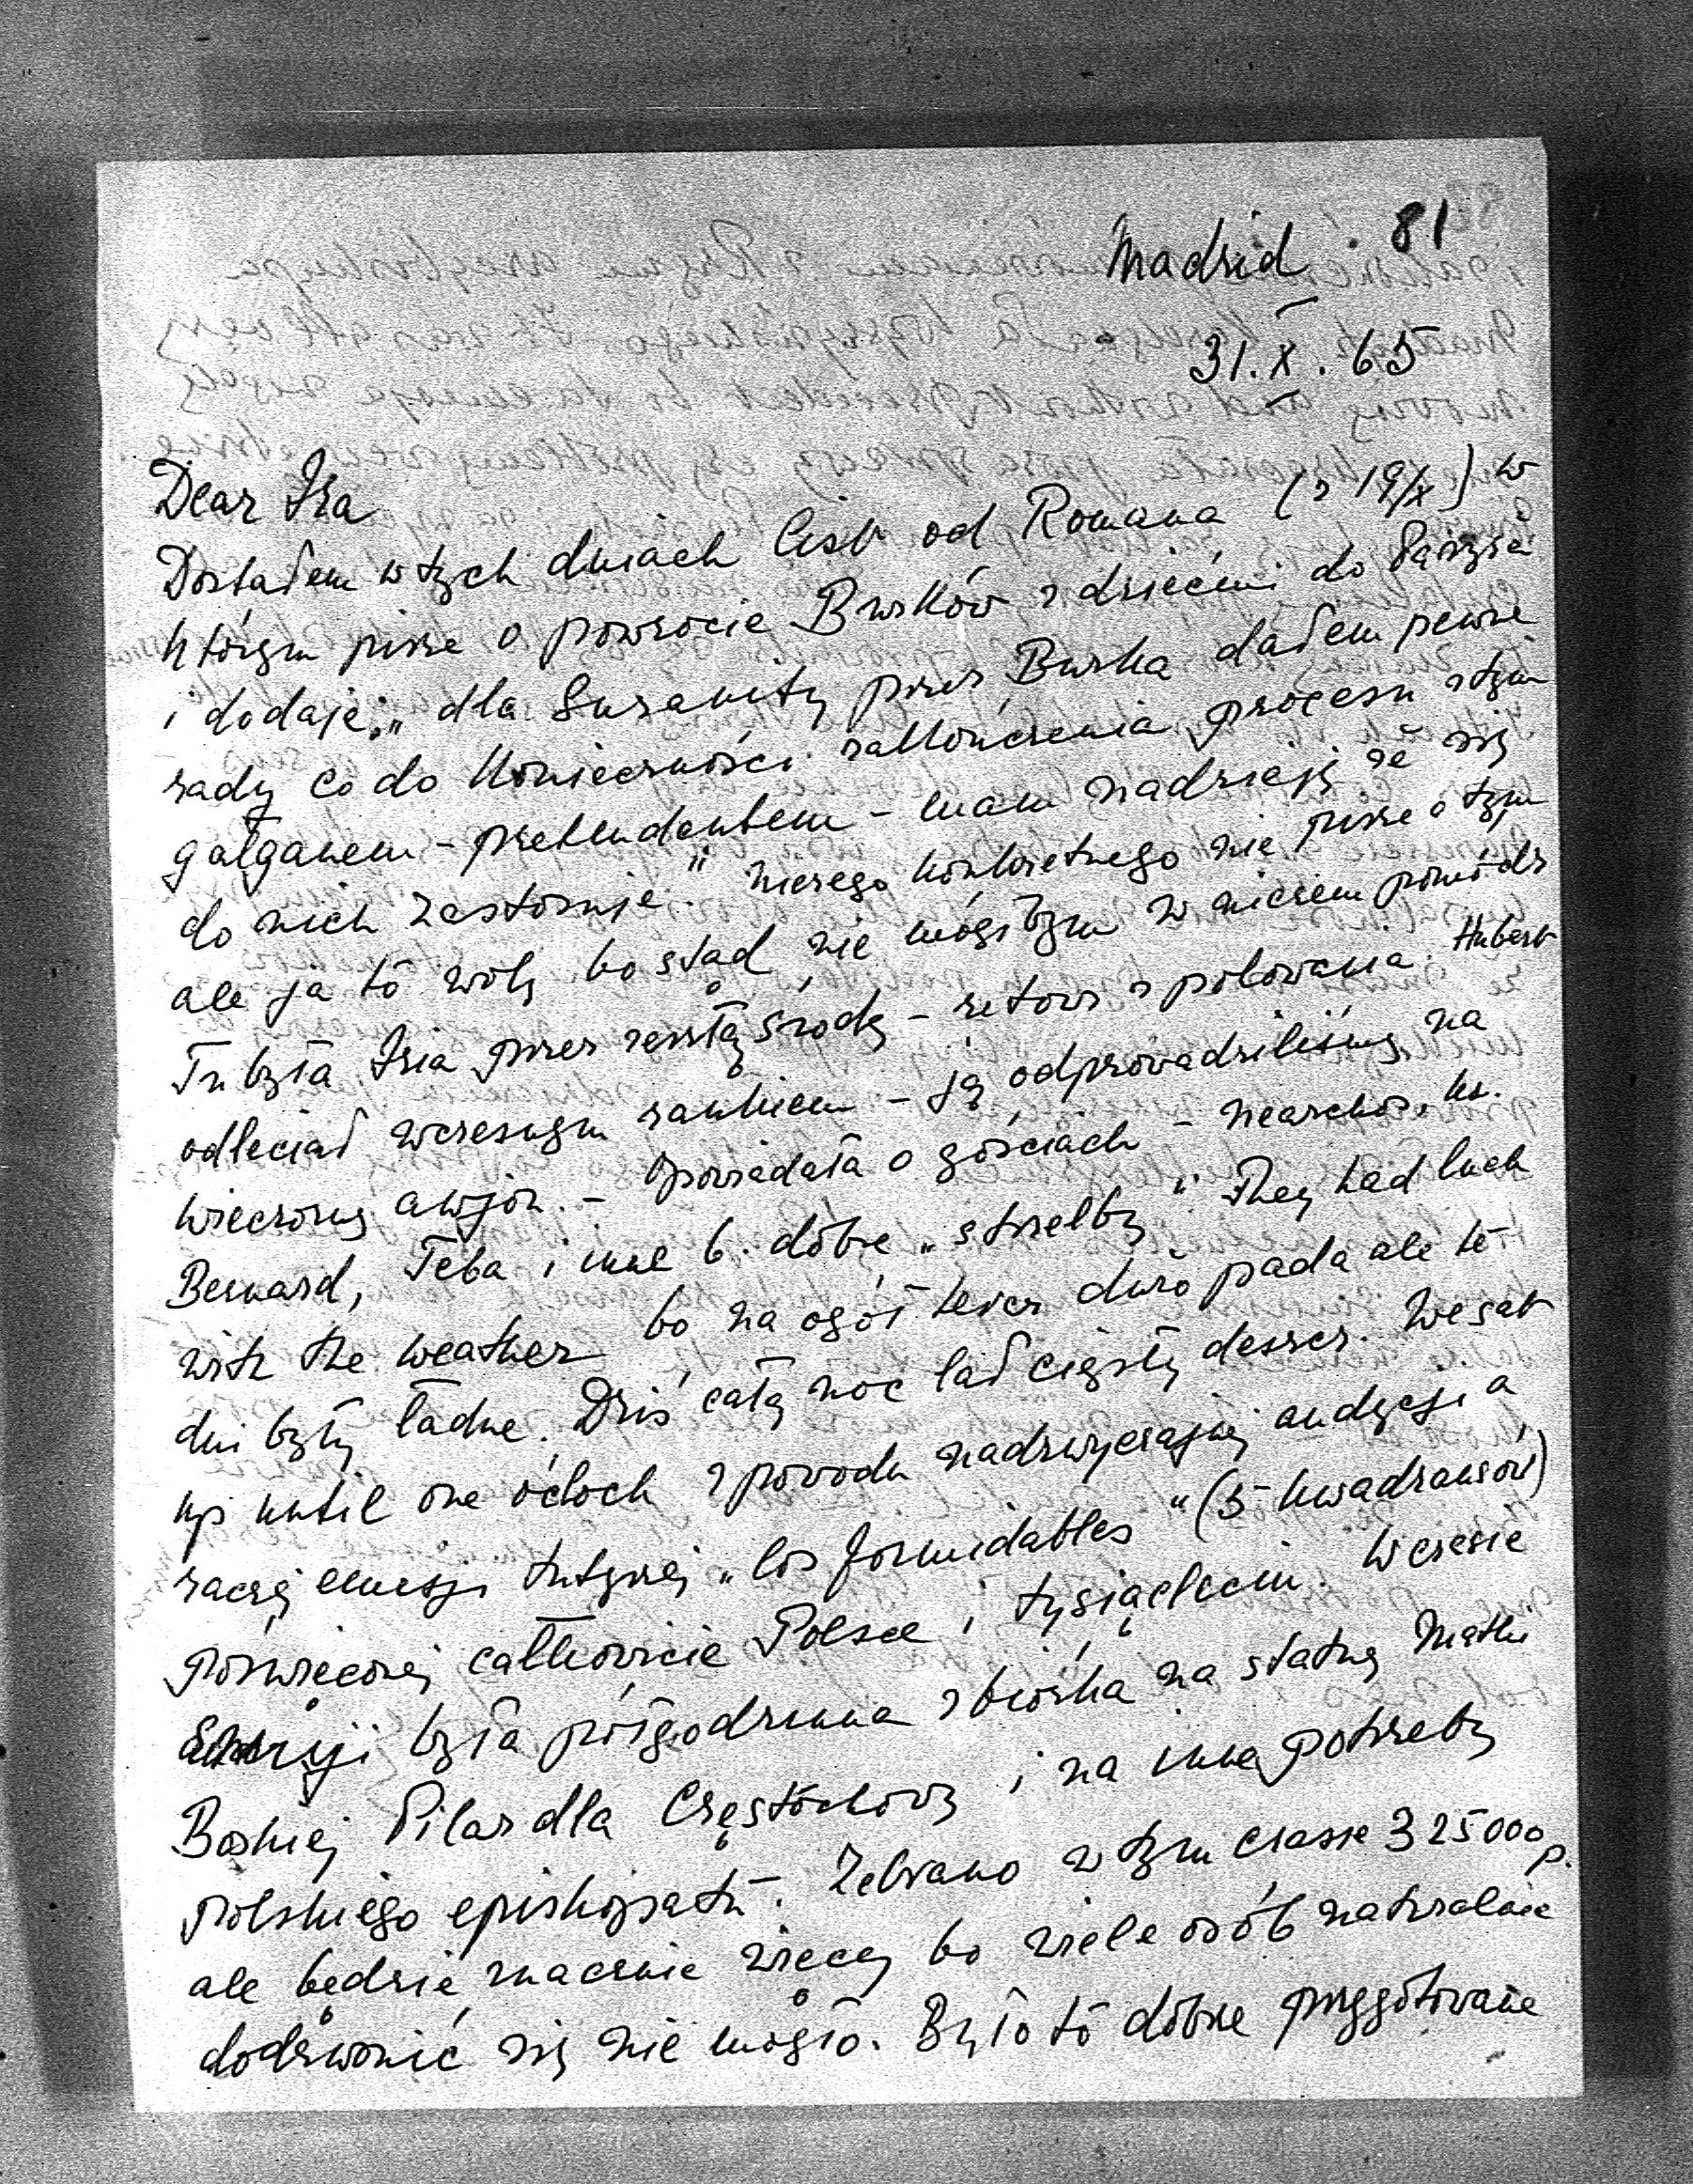 81
Madrid
31.X.65
Dear Iza
Dostałem w tych dniach list od Romana (z 19/X) w
którym pisze o powrocie Burków z dziećmi do Paryża
i dodaje: „dla Suzanity przez Burka dałem pewne
rady co do konieczności zakończenia procesu z tym
gałganem-pretendentem - mam nadzieję że się
do nich zastosuje." Niczego konkretnego nie pisze o tym
ale ja to wolę bo stąd nie mógłbym w niczem pomódz
Tu była Izia przez zeszłą środę - retour z polowania. Hubert
odleciał wczesnym rankiem - ją odprowadziliśmy na
wieczorny awjon. - Opowiadała o gościach - Niarchos, ks.
Bernard, Teba i inne b. dobre „strzelby". They had luck
with the weather bo na ogół teraz dużo pada ale te
dni były ładne. Dziś całą noc lał cięgły deszcz. We sat
up until one o'clock z powodu nadzwyczajnej audycji a
raczej emisji tutejszej „los formidables" (5 kwadransów)
poświęconej całkowicie Polsce i tysiącleciu. W czasie
emisji była półgodzinna zbiórka na statuę Matki
Boskiej Pilar dla Częstochowy i na inne potrzeby
polskiego episkopatu. Zebrano w tym czasie 325000 p.
ale będzie znacznie więcej bo wiele osób naturalnie
dodzwonić się nie mogło. Było to dobrze przygotowane